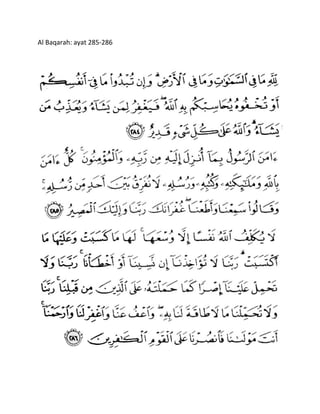 Al Baqarah: ayat 285-286
لِّلَّهِ مَا فِي السَّمَٰوَٰتِ وَمَا فِي الْأَرْضِ ۗ وَإِن تُبْدُوا۟ مَا فِىٓ أَنفُسِكُمْ
أَوْ تُخْفُوهُ يُحَاسِبْكُم بِهِ اللَّهُ ۖ فَيَغْفِرُ لِمَن يَشَآءُ وَيُعَذِّبُ مَن
يَشَآءُ ۗ وَاللَّهُ عَلَىٰ كُلِّ شَىْءٍ قَدِيرٌ ٢٨٤
ءَامَنَ الرَّسُولُ بِمَآ أُنزِلَ إِلَيْهِ مِن رَّبِّهِۦ وَالْمُؤْمِنُونَ ۚ كُلٌّ ءَامَنَ
بِاللَّهِ وَمَلَٰٓئِكَتِهِۦ وَكُتُبِهِۦ وَرُسُلِهِۦ لَا نُفَرِّقُ بَيْنَ أَحَدٍ مِّن رُّسُلِهِۦ ۚ
وَقَالُوا۟ سَمِعْنَا وَأَطَعْنَا ۖ غُفْرَانَكَ رَبَّنَا وَإِلَيْكَ الْمَصِيرُ ٢٨٥
لَا يُكَلِّفُ اللَّهُ نَفْسًا إِلَّا وُسْعَهَا ۚ لَهَا مَا كَسَبَتْ وَعَلَيْهَا مَا
اكْتَسَبَتْ ۗ رَبَّنَا لَا تُؤَاخِذْنَآ إِن نَّسِينَآ أَوْ أَخْطَأْنَا ۚ رَبَّنَا وَلَا
تَحْمِلْ عَلَيْنَآ إِصْرًا كَمَا حَمَلْتَهُۥ عَلَى الَّذِينَ مِن قَبْلِنَا ۚ رَبَّنَا
وَلَا تُحَمِّلْنَا مَا لَا طَاقَةَ لَنَا بِهِۦ ۖ وَاعْفُ عَنَّا وَاغْفِرْ لَنَا وَارْحَمْنَآ ۚ
أَنتَ مَوْلَىٰنَا فَانصُرْنَا عَلَى الْقَوْمِ الْكَٰفِرِينَ ٢٨٦